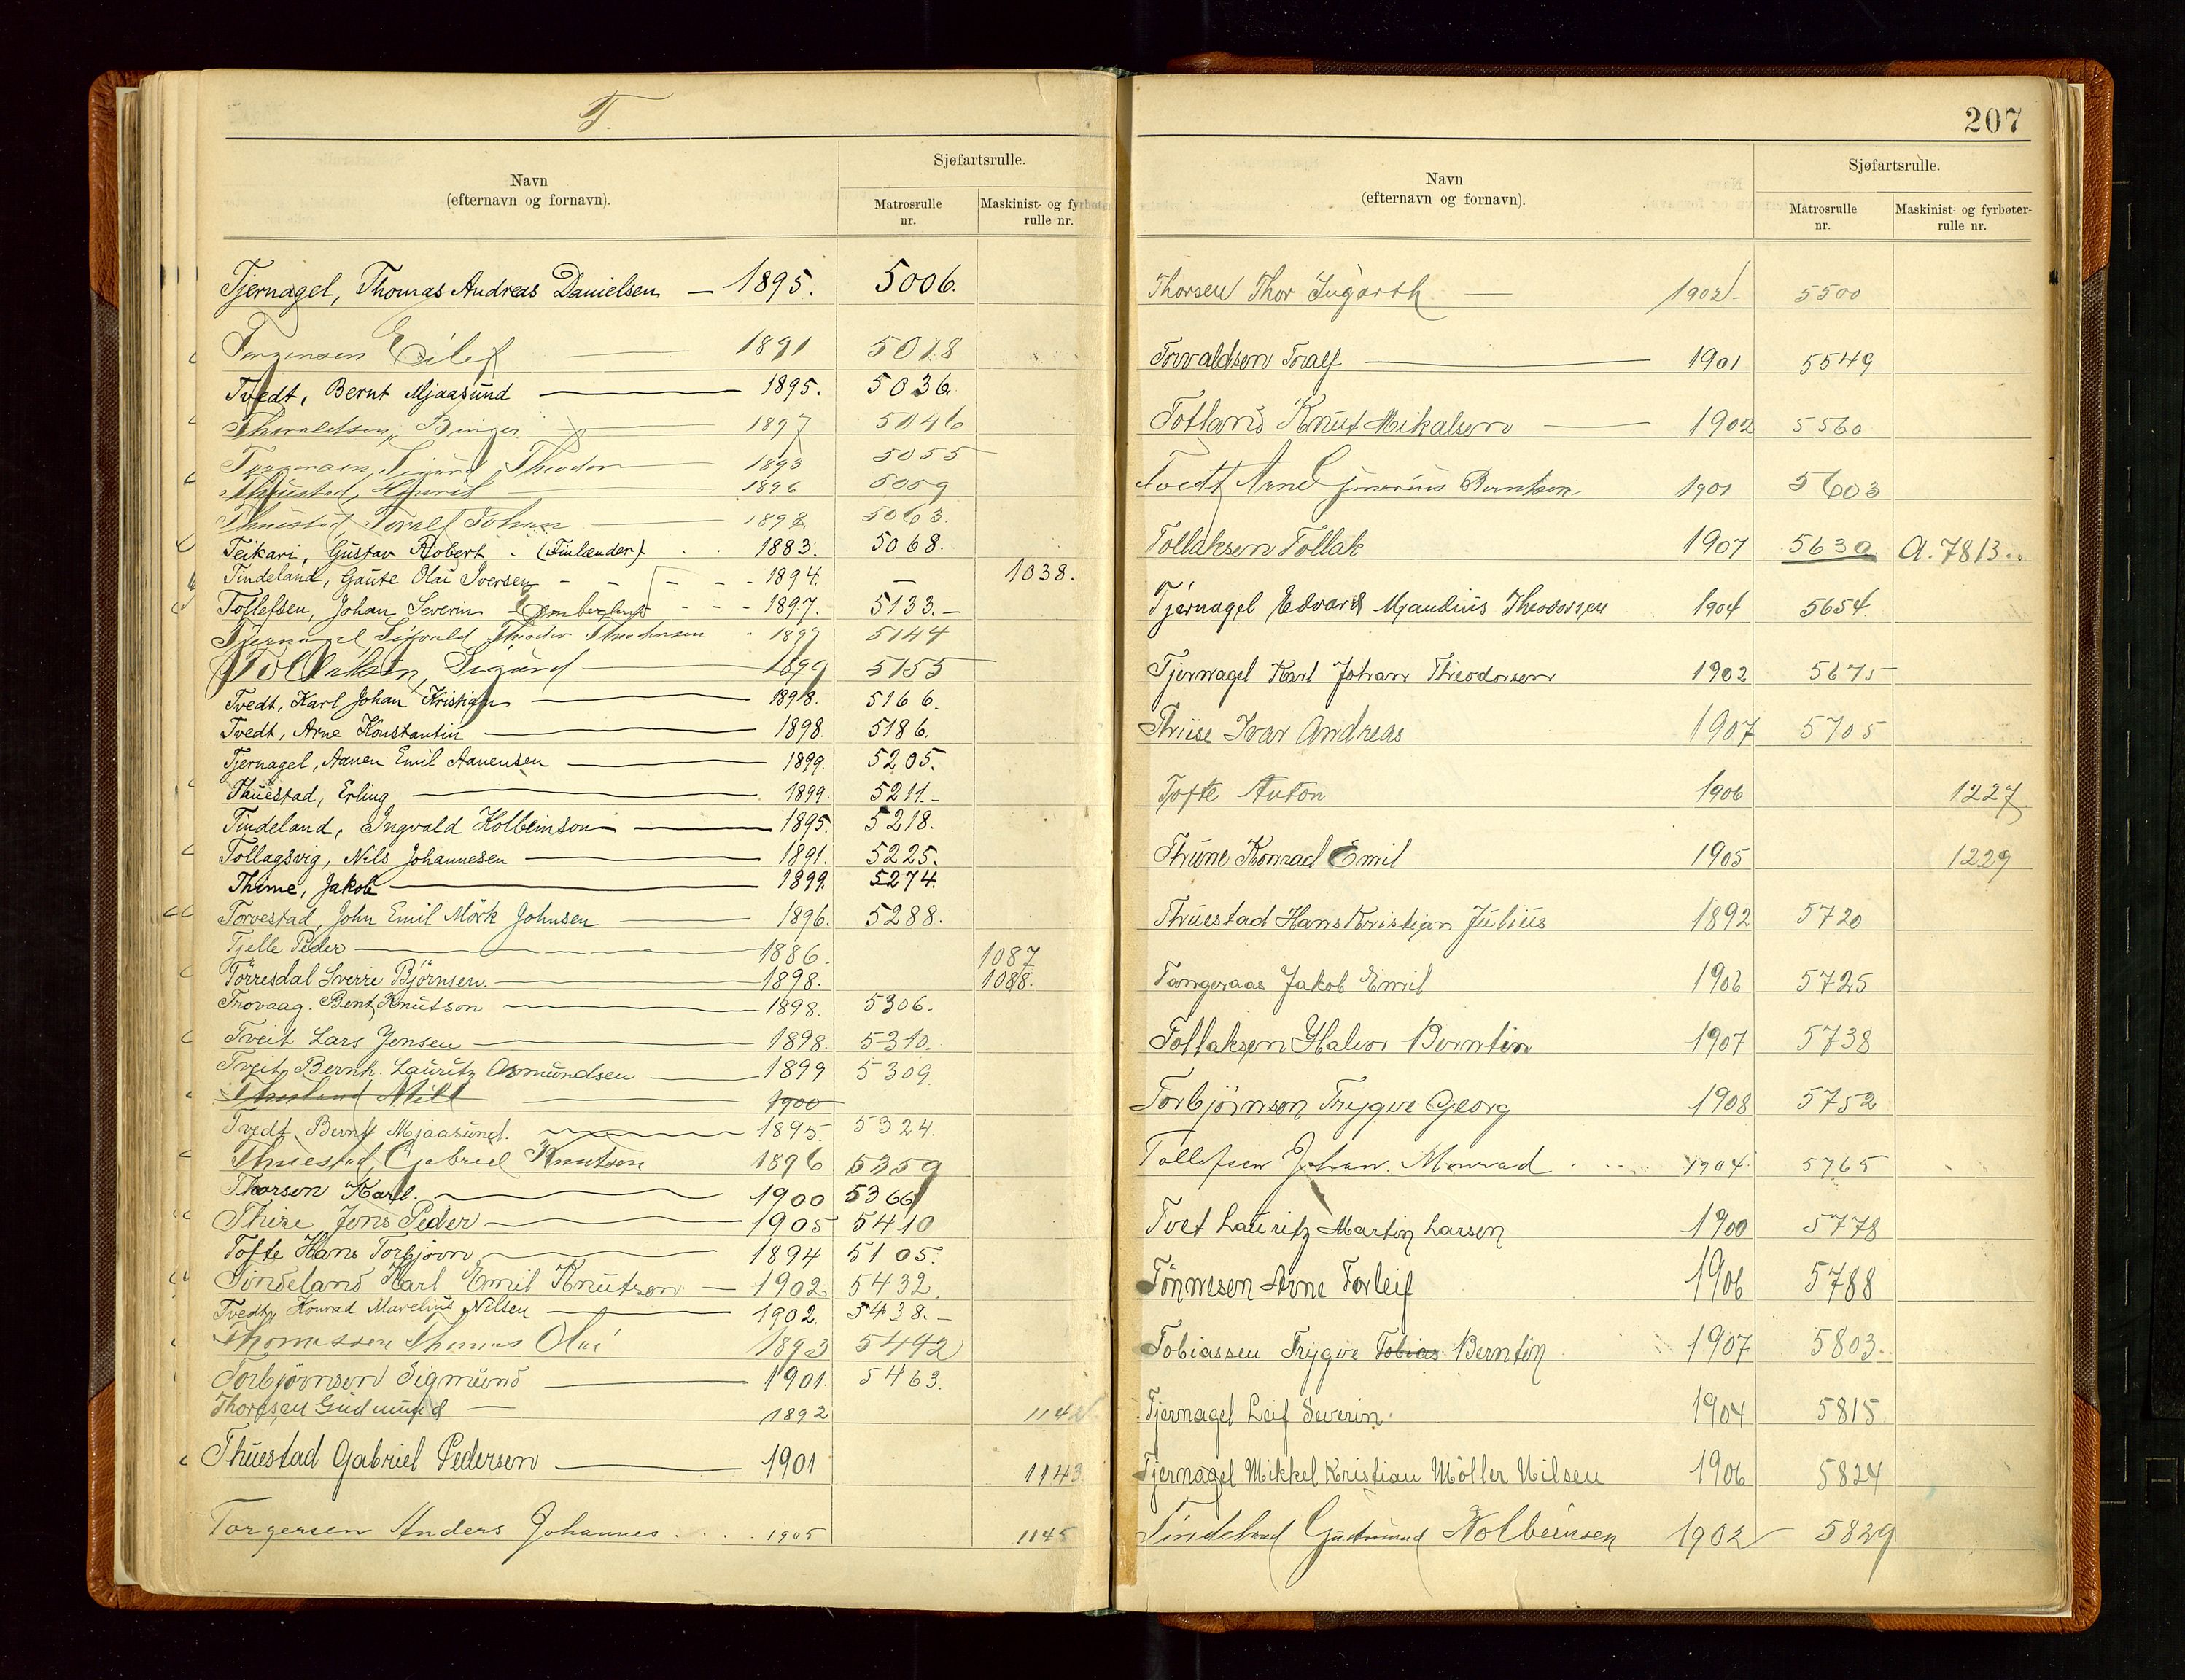 T.
Navn
(efternavn og fornavn).
Sjøfartsrulle.
Matrosrulle
nr.
Maskinist- og fyrbøter-
rulle nr.
Tjernagel, Thomas Andreas Danielsen — 1895. 5006.
Torgersen Eilef — 1891 5018
Tvedt, Bernt Mjaasund — 1895. 5036.
Thoraldsen, Birger — 1897 5046
Sigurd Theodor — 1893 5055
Thuestad, Henrik — 1896 5059
Thuestad Toralf Johan — 1898. 5063.
Teikari, Gustav Robert. (Finlænder) . . 1883. 5068.
Tindeland, Gaute Olai Iversen - - - - 1894. — 1038.
Tollefsen, Johan Severin - - - 1897. 5133.-
Tjernagel Sigvald Theodor Theodorsen - 1897 5144
Tollaksen, Sigurd — 1899 5155
Tvedt, Karl Johan Kristian — 1898. 5166.
Tvedt, Arne Konstantin — 1898. 5186.
Tjernagel, Aanen Emil Aanensen — 1899. 5205.
Thuestad, Erling — 1899. 5211.-
Tindeland, Ingvald Kolbeinson — 1895. 5218.
Tollagsvig, Nils Johannesen — 1891. 5225.
Thime, Jakob — 1899. 5274.
Torvestad, John Emil Mörk Johnsen — 1896. 5288.
Tjelle Peder — 1886. 1087
Törresdal Sverre Björnsen. — 1898. 1088.
Trovaag. Bent Knutson — 1898. 5306.
Tveit Lars Jensen — 1898. 5310.
Tveit, Bernh. Lauritz Osmundsen — 1899 5309.
1900
Tvedt, Bernt Mjaasund. — 1895. 5324.
Thuestad, Gabriel Knutsen 1896 5359
Thorsen Karl. — 1900 5366
Jens Peder — 1905 5410
Tofte Hans Torbjörn — 1894 5105.
Tindeland Karl Emil Knutson — 1902 5432.
Tvedt, Konrad Marelius Nilsen — 1902. 5438.-
Thomassen Thomas Olai 1893 5442
Torbjörnsen Sigmund — 1901. 5463.
Thoresen Gudmund — 1892
Thuestad Gabriel Pedersen — 1901 1143
Torgersen Anders Johannes . . . . 1905 1145
207
Navn
(efternavn og fornavn).
Sjøfartsrulle.
Matrosrulle
nr.
Maskinist- og fyrbøter-
rulle nr.
Thorsen Thor — 1902 5500
Torvaldsen Toralf — 1901 5549
Totland Knut Mikalsen — 1902 5560
Tvedt Arne Berntsen 1901 5603
Tollaksen Tollak 1907 5630 A. 7813..
Tjernagel Edvard Mjandius Theodorsen 1904 5654.
Tjernagel Karl Johan Theodorsen 1902 5675
Thiise Ivar Andreas 1907 5705
Tofte Anton 1906 1227
Thune Konrad Emil 1905 1229
Thuestad Hans Kristian Julius 1892 5720
Tangeraas Jakob Emil 1906 5725
Tollaksen Halvor Berntin 1907 5738
Torbjörnson Trygve Georg 1908 5752
Tollefsen Johan. Monrad . . . . 1904. 5765
Tvet Lauritz Martin Larsen 1900 5778
Tönnesen Arne Torleif 1906 5788
Tobiassen Trygve Tobias Berntin 1907 5803.
Tjernagel Leif Severin. 1904 5815
Tjernagel Mikkel Kristian Möller Nilsen 1906 5824
Tindeland Gudmund Kolbeinsen 1902 5829